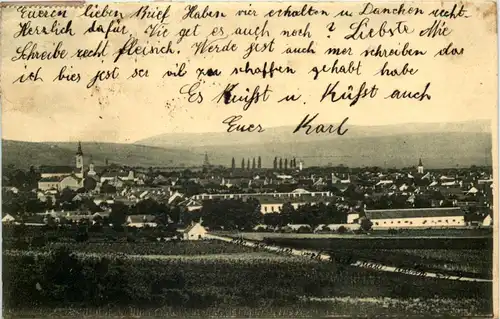 Eueren lieben Brief Haben wir erhalten u Danchen recht
Herzlich dafür. Wie get es auch noch? Liebste Mie
Schreibe recht fleisich. Werde jest auch mer schreiben das
ich bies jest ser vil zu schaffen gehabt habe
Es Küsst u. Küsst auch
Euer Karl